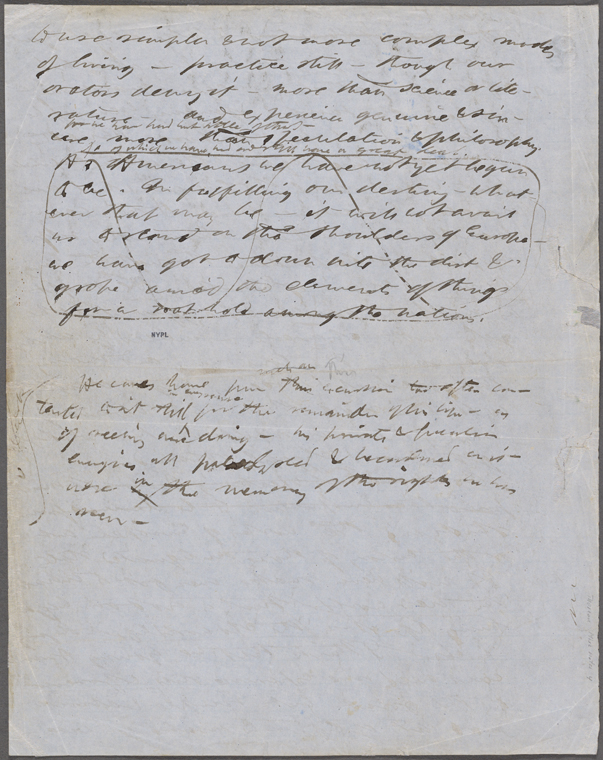 to use simpler & not more complex modes
of living — practice still — though our
orators deny it — more than science & lite-
rature and experience genuine & sin-
for we have had but little of this
cere more than speculation & philosophy.
of which we have had and still have a great deal
As Americans we have not yet begun
to be. In fulfilling our destiny — what
ever that may be — it will not avail
us to stand on the shoulders of Europe —
we have got to down into the dirt &
grope amid the elements of things
for a foot hold among the nations.
NYPL
He comes home from this excursion too often con-
tented to sit still for the remainder of his life — as
of seeing and doing — his
energies all & as it
were in the memory of the sights he has
seen —